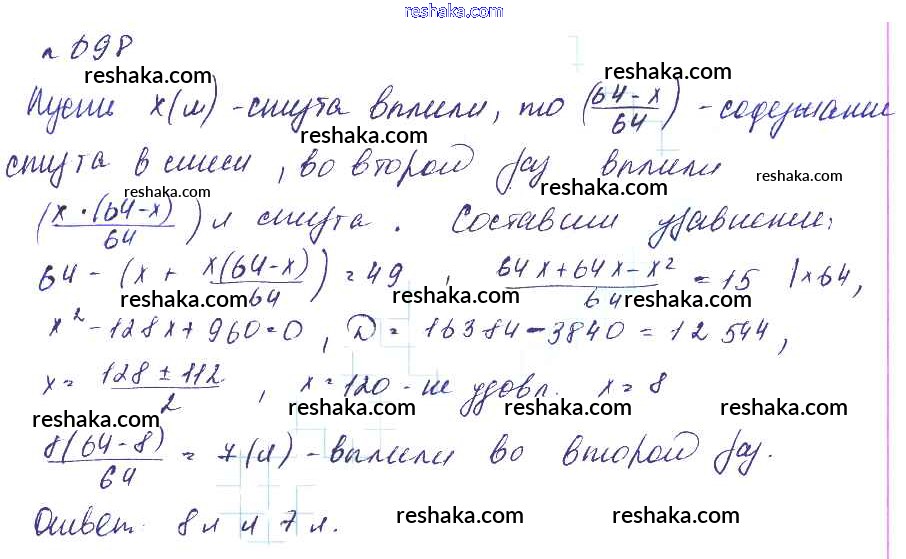 reshaka.com
n 698
reshaka.com reshaka.com reshaka.com
Пусть x(л) - спирта вылили, то ((64-x)/64) - содержание
reshaka.com
спирта в смеси, во второй раз вылили
reshaka.com reshaka.com reshaka.com
(x·(64-x)/64) л спирта. Составим уравнение:
64 - (x + x(64-x)/64) = 49, (64x+64x-x²)/64 = 15 |×64,
reshaka.com reshaka.com reshaka.com
x² - 128x + 960 = 0, D = 16384 - 3840 = 12 544,
x = (128 ± 112)/2, x = 120 - не удовл. x = 8
reshaka.com reshaka.com reshaka.com reshaka.com
8(64-8)/64 = 7(л) - вылили во второй раз.
Ответ: 8л и 7л.
reshaka.com reshaka.com reshaka.com
reshaka.com